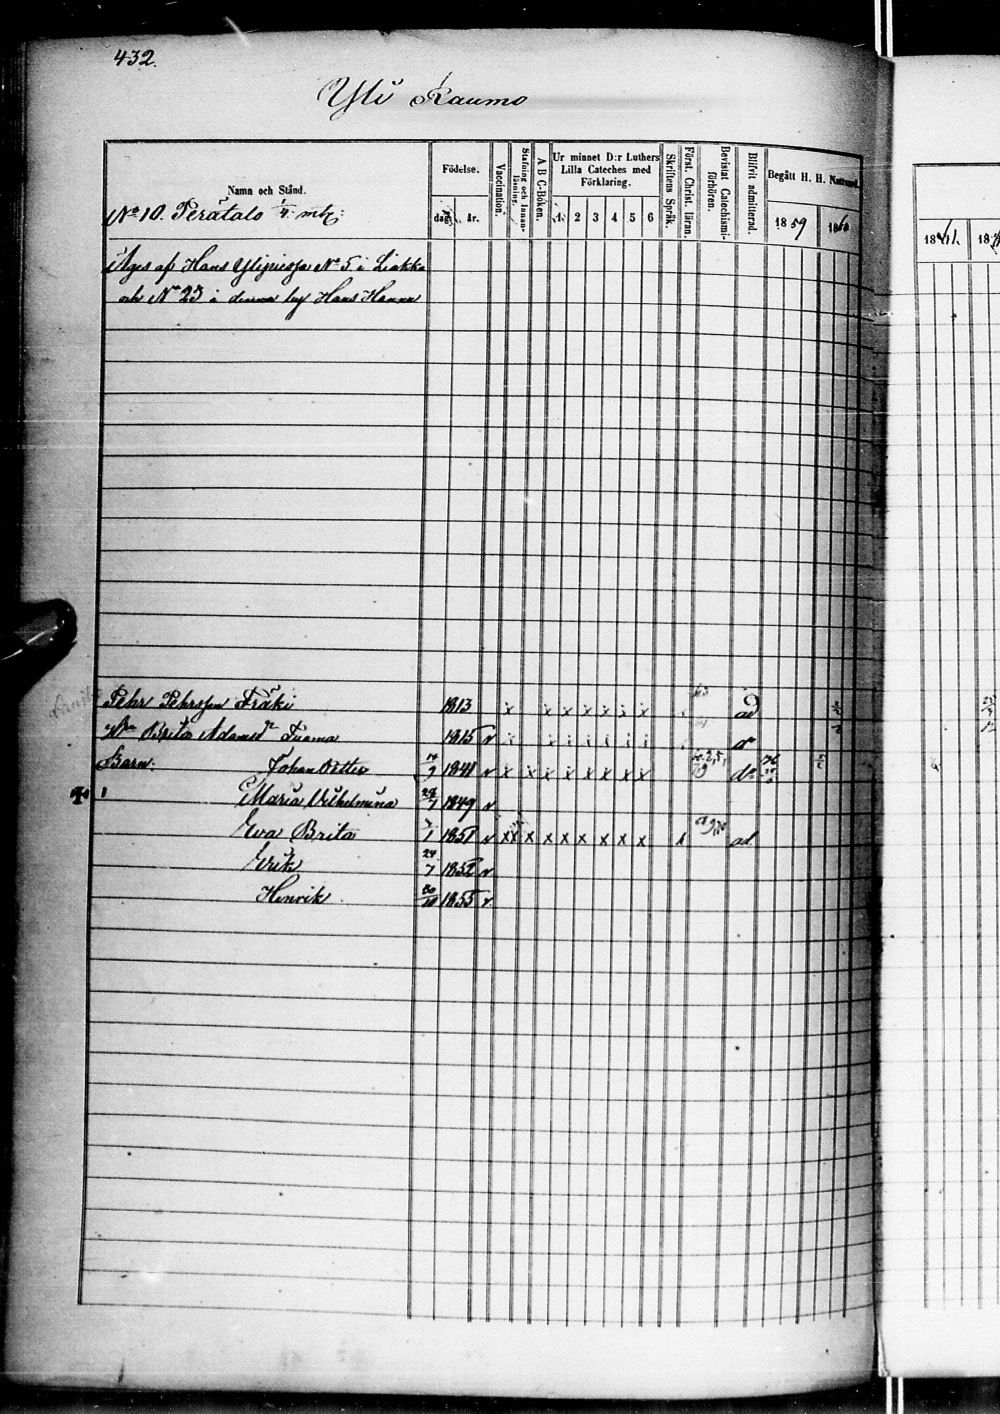 432.
Yli Raumo
Namn och Stånd.
Födelse.
dag. år.
Vaccination.
Stafning och Innan-läsning.
A B C-Boken.
Ur minnet D:r Luthers Lilla Cateches med Förklaring.
1. 2 3 4 5 6
Skriftens Språk.
Först. Christ. läran.
Bevistat Catechismi-förhören.
Blifvit admitterad.
Begått H. H. Nattvard.
1859 1860
1861.
No 10. Perätalo 1/4 mtl:
Äges af Hans Ylipiessa No 5 i Liakka
och No 23 i denna by Hans Hannu
Pehr Pehrsson Fräki 1813 x x x x x x x ad
H:u Brita Adamsdr Tuoma 1815 v
Barn: Johan Petter 1841 v x x x x x x x x do
Maria Vilhelmina 28/7 1849 v
Eva Brita 1851 v x x x x x x x x ad
Erik 24/7 1852 v
Henrik 30/10 1855 v.